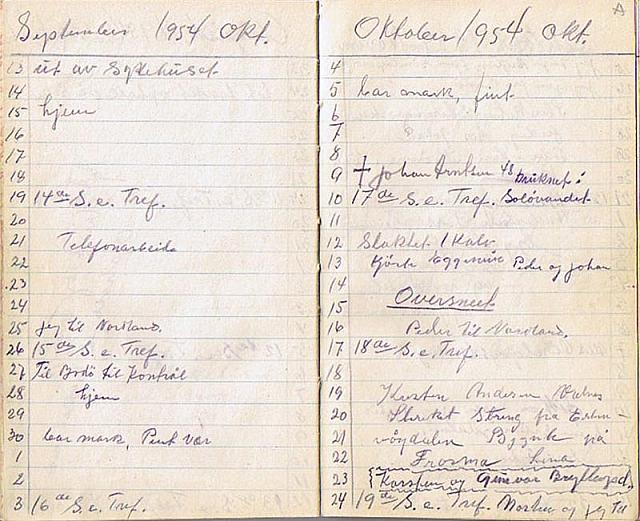 September 1954 Okt.
13 ut av Sykehuset
14
15 hjem
16
17
18
19 14de S. e. Tref.
20
21 Telefonarbeide
22
23
24
25 jeg til Nordland.
26 15de S. e. Tref.
27 Til Bodö til Kontrol
28 hjem
29
30 bar mark, Pent vær
1
2
3 16de S. e. Tref.
Oktober 1954 Okt.
4
5 bar mark, fint
6
7
8
9 † Johan 48 druknet i
10 17de S. e. Tref. Solövandet
11
12 Slaktet 1 Kalv
13 Kjörte Peder og Johan
14
15 Oversneet
16 Peder til Nordland.
17 18de S. e. Tref.
18
19 Andersen
20 fra
21 på
22
23 Karsten og Bryllupsd.
24 19de S. e. Tref. og jeg til